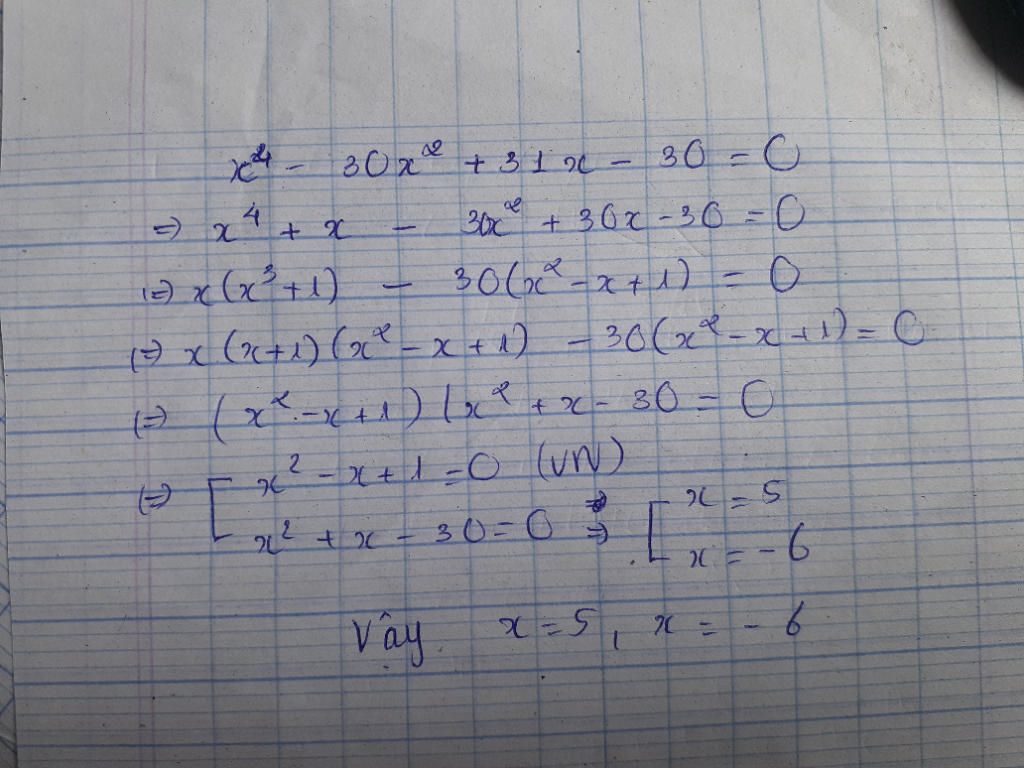 x⁴ - 30x² + 31x - 30 = 0
=> x⁴ + x - 30x² + 30x - 30 = 0
(=> x(x³ + 1) - 30(x² - x + 1) = 0
(=> x(x+1)(x² - x + 1) - 30(x² - x + 1) = 0
(=> (x² - x + 1)(x² + x - 30 = 0
(=> [ x² - x + 1 = 0 (VN)
x² + x - 30 = 0 => [ x = 5
x = -6
Vậy x = 5, x = -6